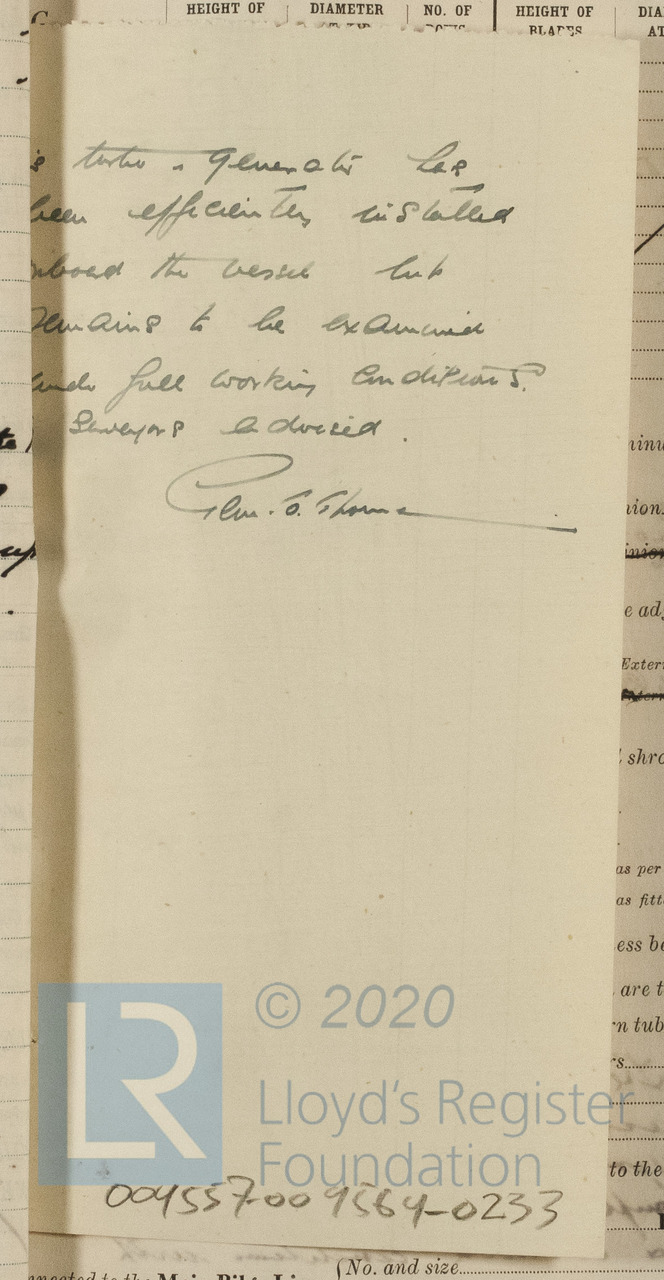 HEIGHT OF DIAMETER NO. OF HEIGHT OF DIA
BLADES AT
s turbo - generator has
been efficiently installed
onboard the vessel but
remains to be examined
under full working conditions.
Surveyors advised.
to
up
ninu
nion.
inion
e adj
Exter
shro
as per
as fitt
ess be
are t
n tub
s
to the
© 2020
LR
Lloyd's Register
Foundation
004557-009564-0233
nnected to the Main Bilge Li
No. and size